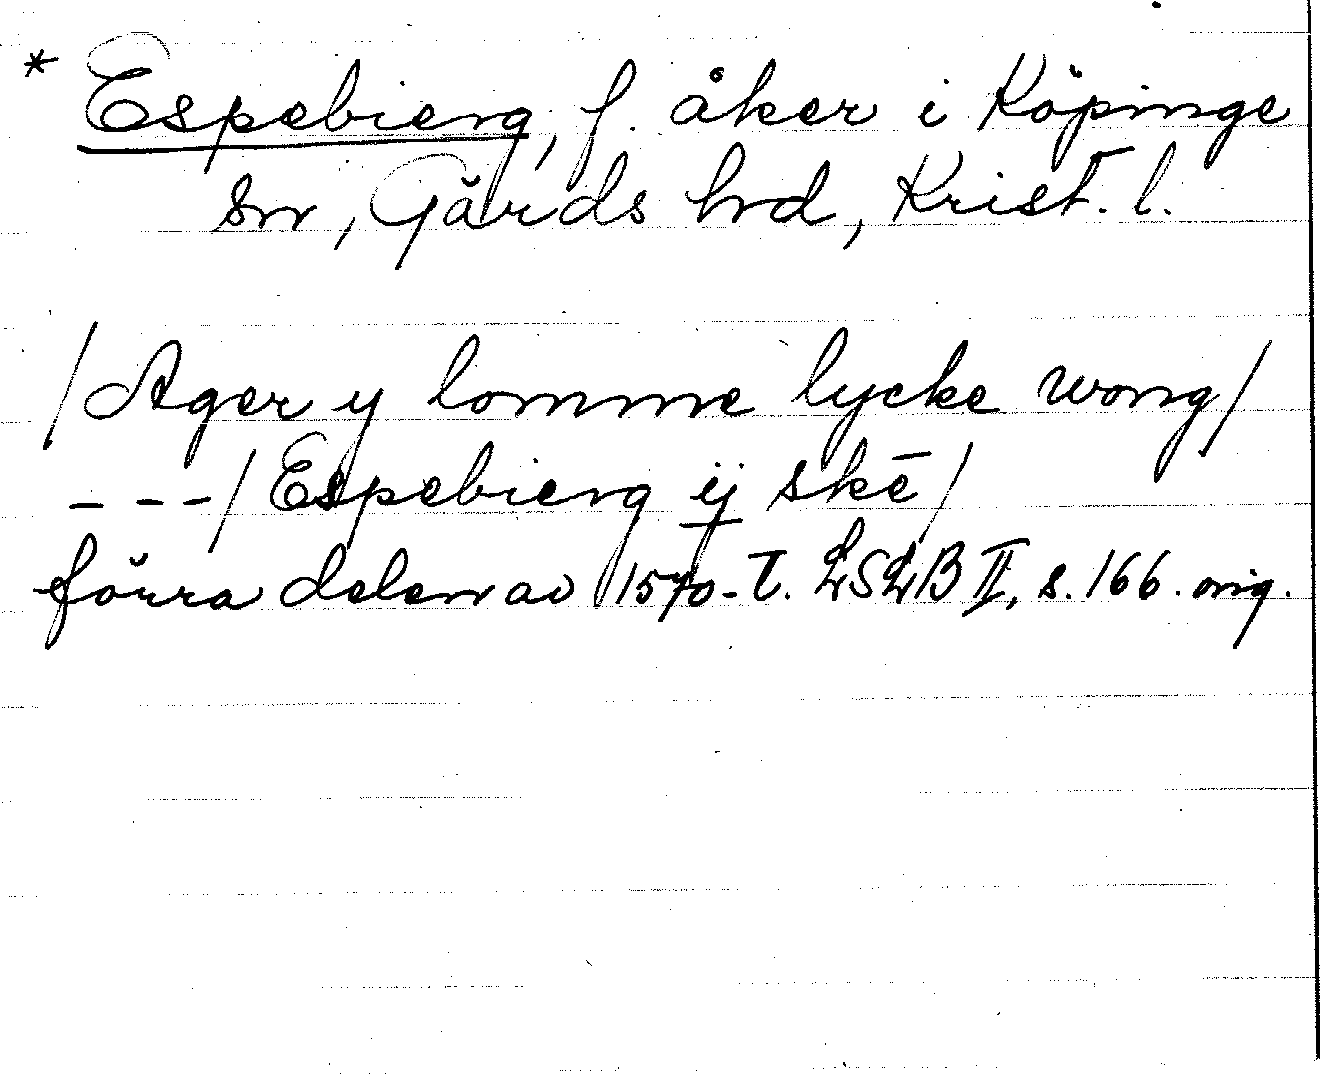 * Espebierg, f. åker i Köpinge
sn, Gärds hrd, Krist. l.
/Ager y lomme lycke wong/
- - -/Espebierg ij skē/
förra delen av 1570-t. LSLB II, s. 166. orig.